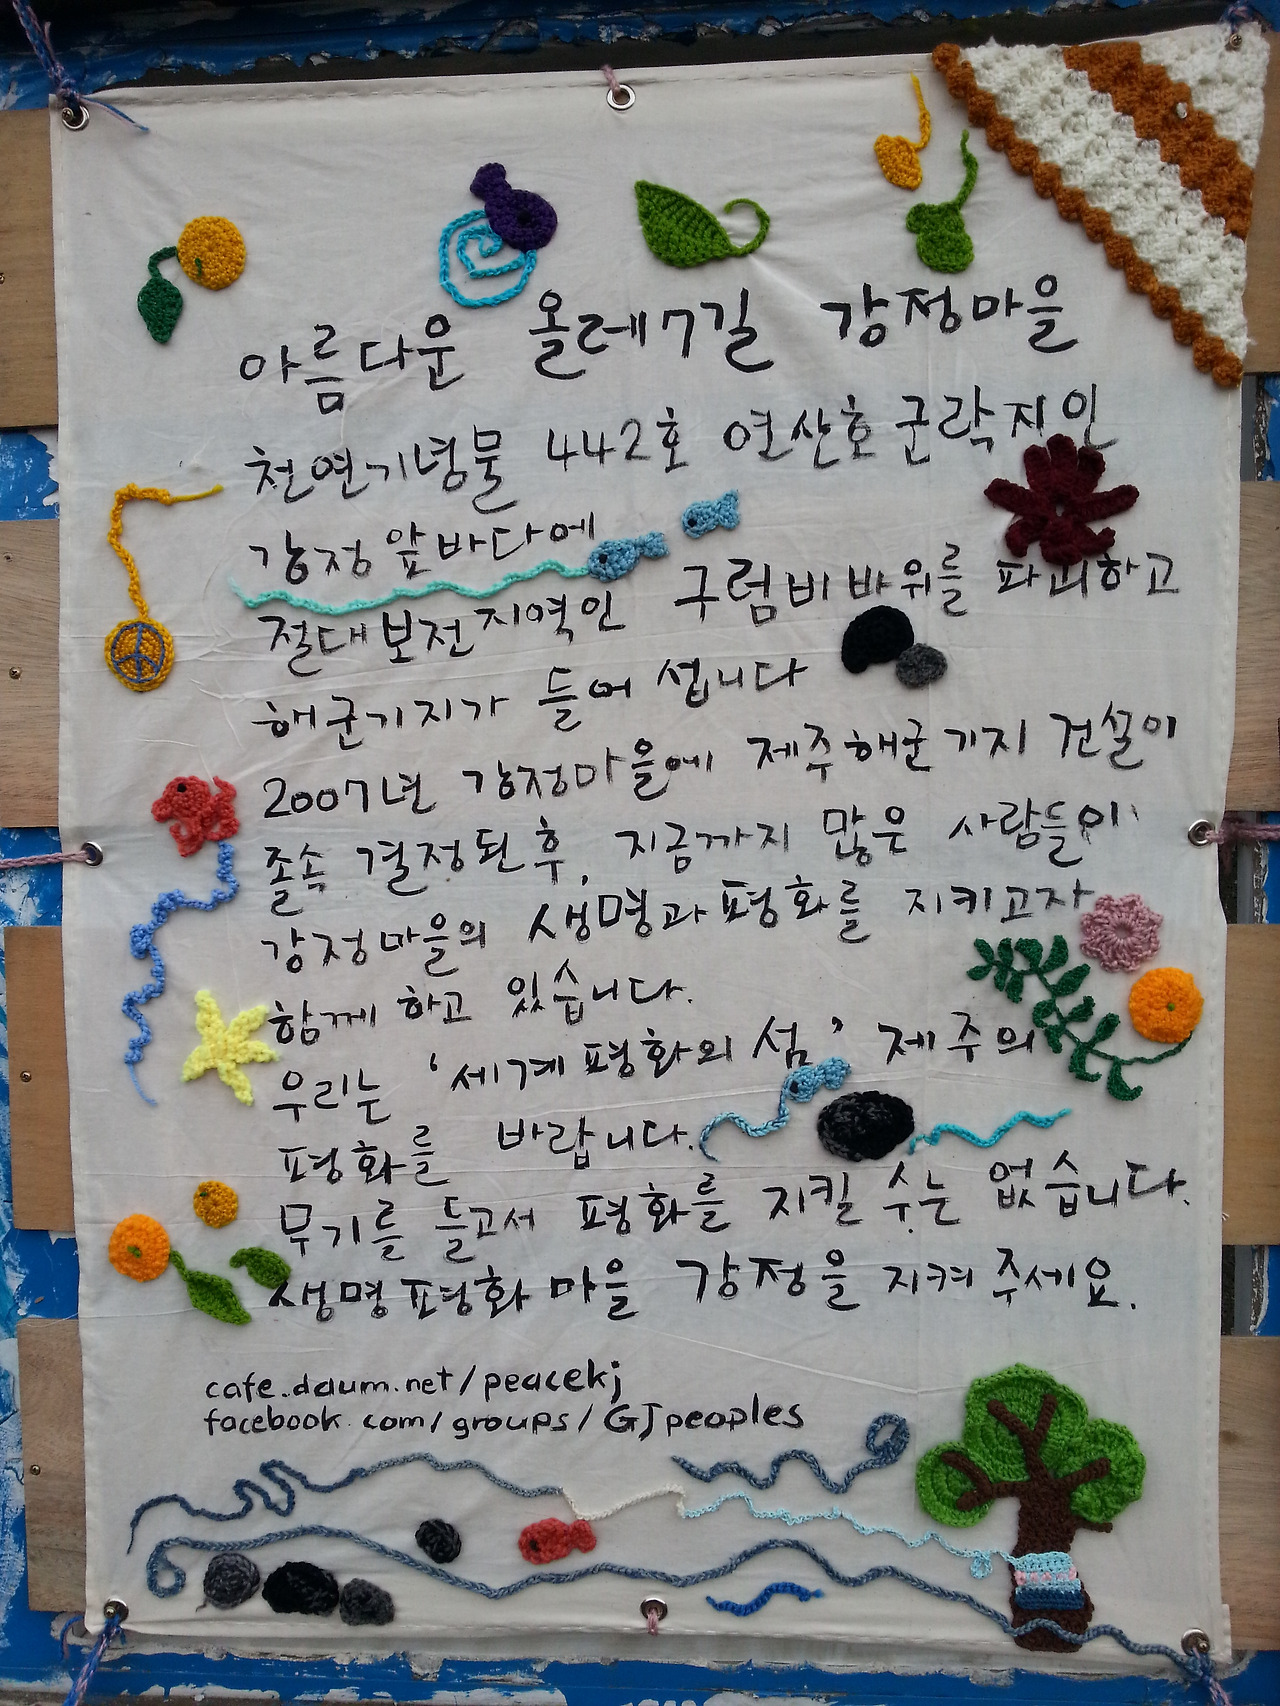 아름다운 올레7길 강정마을
천연기념물 442호 연산호군락지인
강정앞바다에
절대보전지역인 구럼비바위를 파괴하고
해군기지가 들어 섭니다
2007년 강정마을에 제주해군기지 건설이
졸속 결정된 후, 지금까지 많은 사람들이
강정마을의 생명과 평화를 지키고자
함께 하고 있습니다.
우리는 '세계평화의 섬' 제주의
평화를 바랍니다.
무기를 들고서 평화를 지킬 수는 없습니다.
생명평화마을 강정을 지켜 주세요.
cafe.daum.net/peacekj
facebook.com/groups/GJpeoples